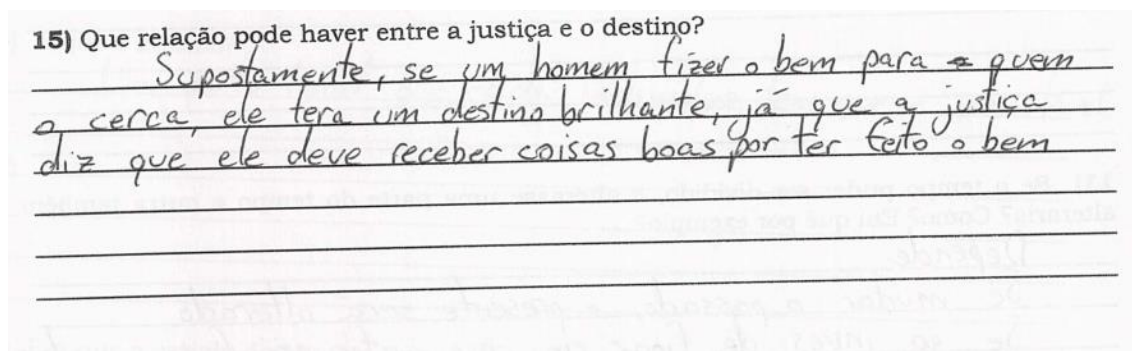 15) Que relação pode haver entre a justiça e o destino?
Supostamente, se um homem fizer o bem para quem
o cerca, ele tera um destino brilhante, já que a justiça
diz que ele deve receber coisas boas por ter feito o bem